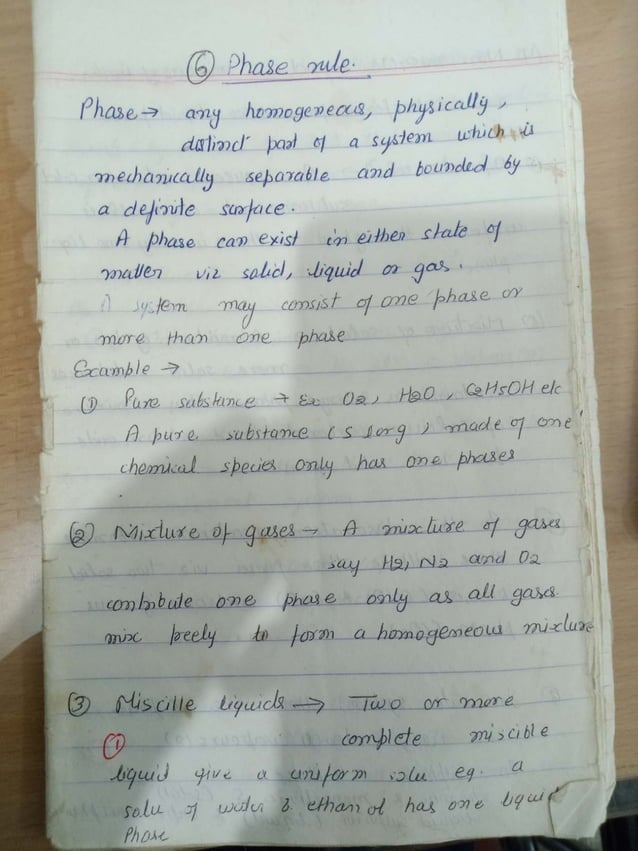 ⑥ Phase rule.
Phase → any homogeneous, physically,
distinct part of a system which is
mechanically separable and bounded by
a definite surface.
A phase can exist in either state of
matter viz solid, liquid or gas.
A system may consist of one phase or
more than one phase
Example →
① Pure substance → Ex O2, H2O, C2H5OH etc
A pure substance (s l or g) made of one
chemical species only has one phases
② Mixture of gases → A mixture of gases
say H2, N2 and O2
contribute one phase only as all gases
mix freely to form a homogeneous mixture
③ Miscille liquids → Two or more
① complete miscible
liquid give a uniform solu eg. a
solu of water & ethanol has one liquid
Phase